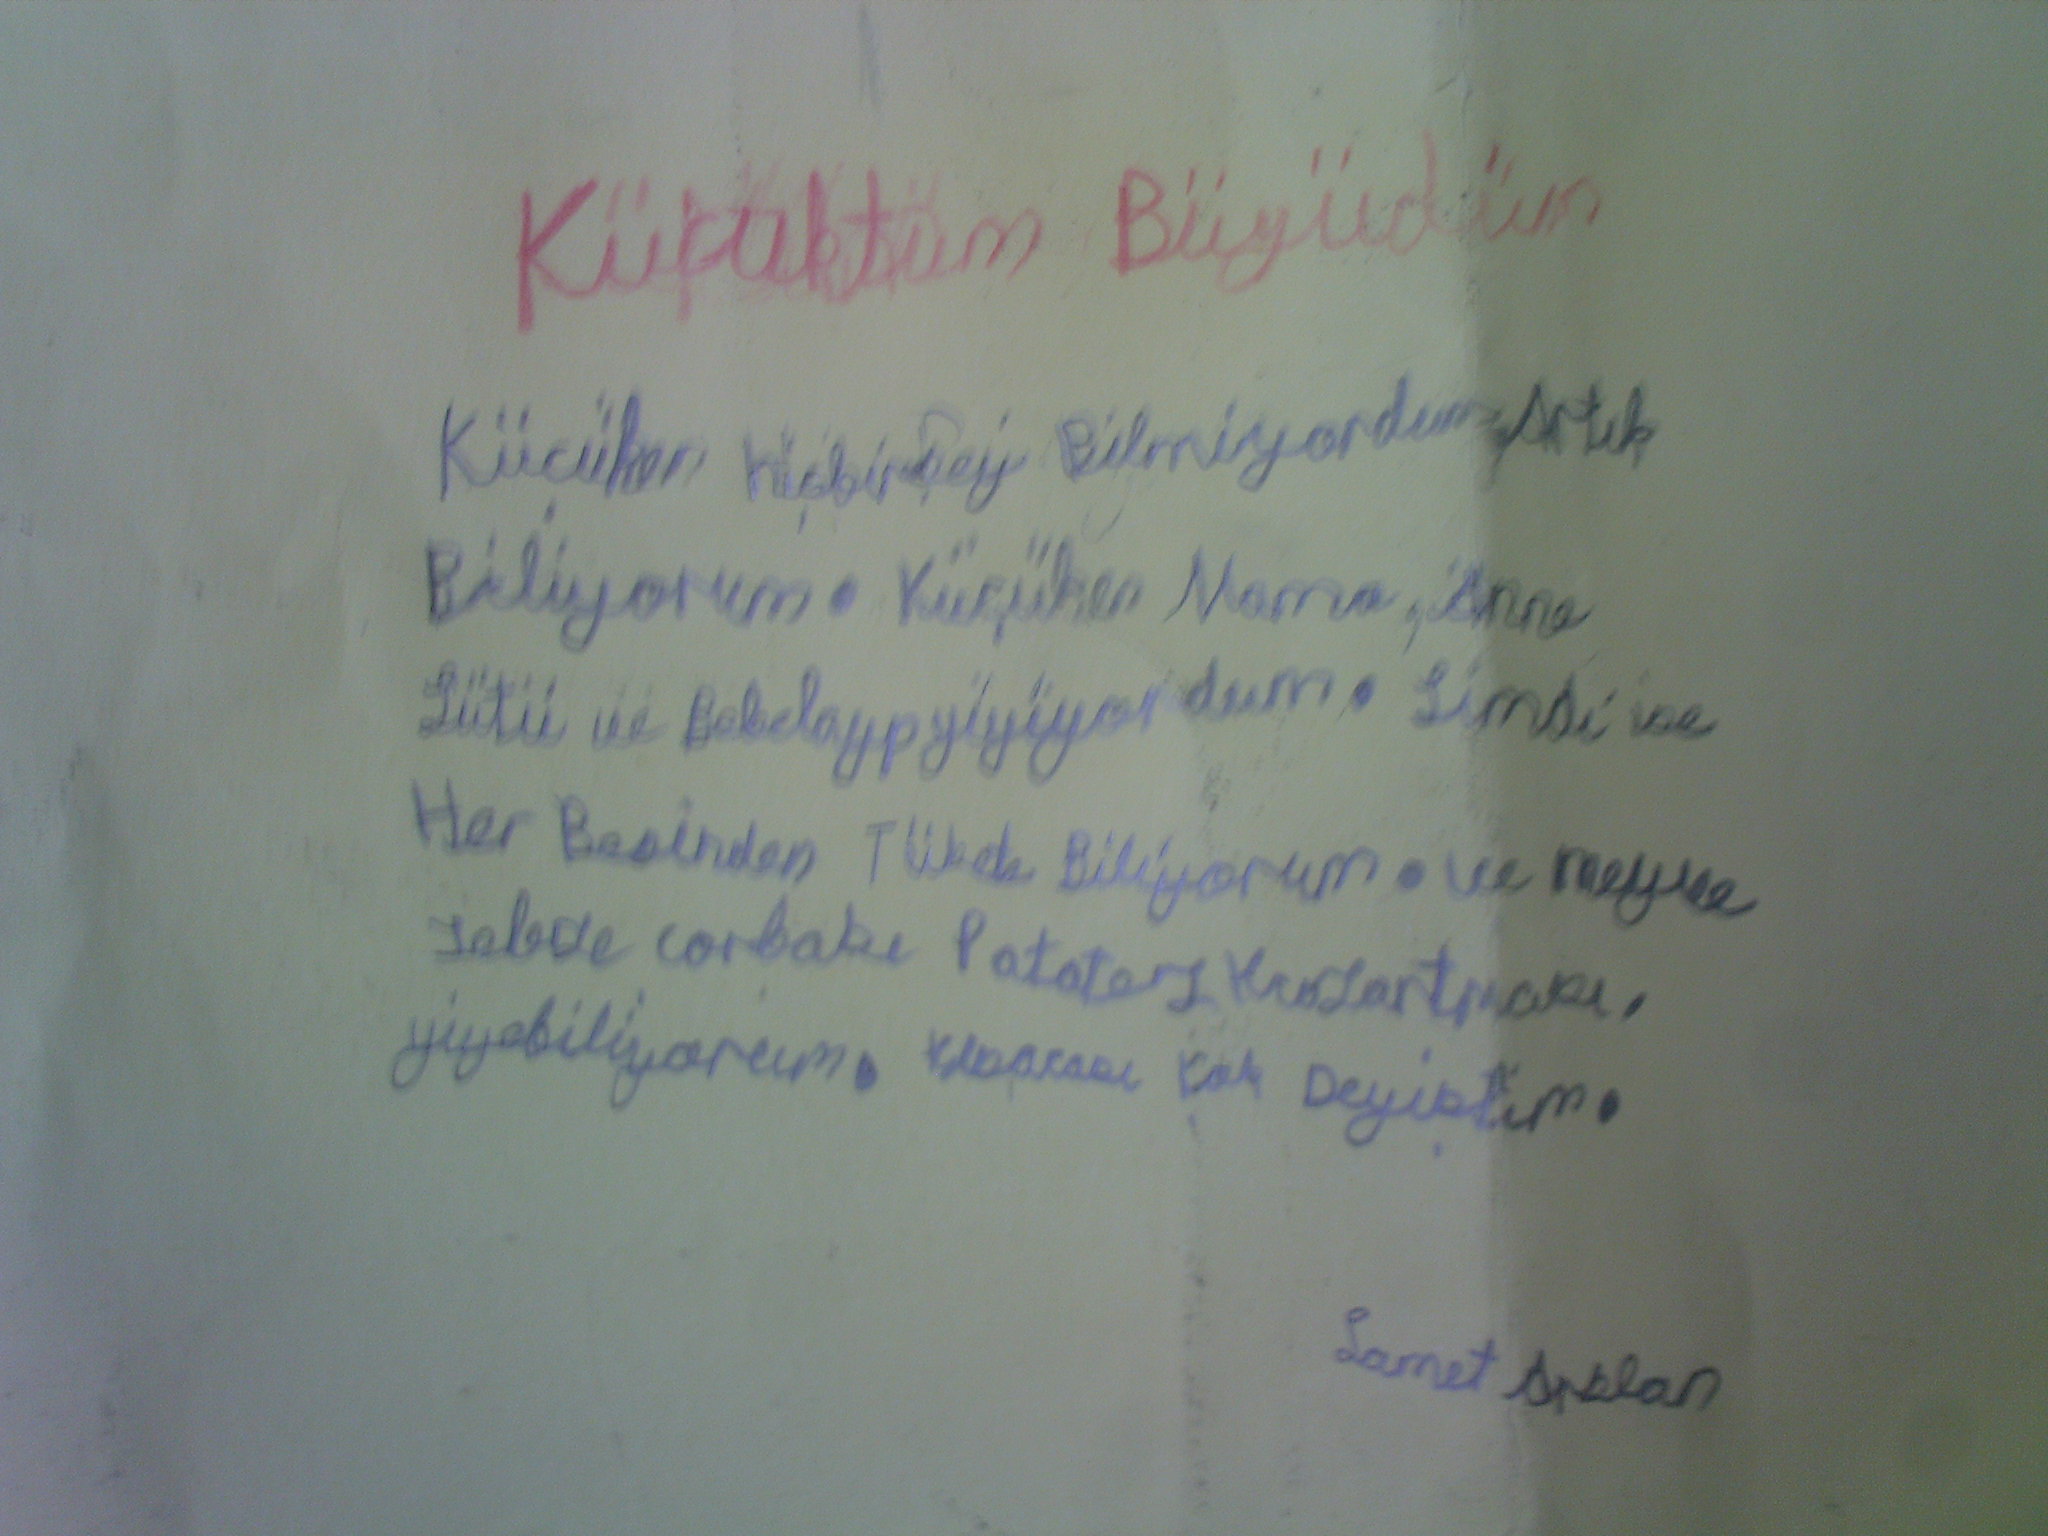 Küçüktüm Büyüdüm
Küçüken hiçbirşey Bilmiyordum, Artık
Biliyorum. Küçüken Mama, Anne
Sütü ve Bebelaypyiyiyordum. Şimdi ise
Her Besinden Tükete Biliyorum. ve meyve
sebze corbası Patates Kızartması,
yiyebiliyorum. Kısacası çok Deyiştim.
Samet Arslan